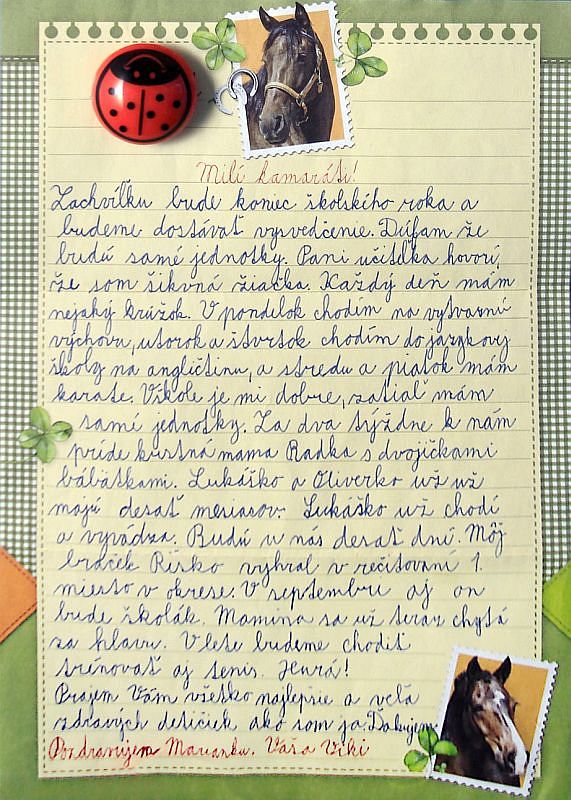 Milí kamaráti!
Zachvíľku bude koniec školského roka a
budeme dostávať vysvedčenie. Dúfam že
budú samé jednotky. Pani učiteľka hovorí,
že som šikvná žiačka. Každý deň mám
nejaký krúžok. V pondelok chodím na vytvarnú
výchovu, utorok a štvrtok chodím do jazykovej
školy na angličtinu, a stredu a piatok mám
karate. Vškole je mi dobre, zatiaľ mám
samé jednotky. Za dva týždne k nám
príde krstná mama Radka s dvojičkami
bábätkami. Lukáško a Oliverko už už
majú desať mesiacov. Lukáško už chodí
a vyvádza. Budú u nás desať dní. Môj
braček Riško vyhral v rečitovaní 1.
miesto v okrese. V septembru aj on
bude školák. Mamina sa už teraz chytá
za hlavu. V lete budeme chodiť
trénovať aj tenis. Hurá!
Prajem Vám všetko najlepšie a veľa
zdravých detičiek, ako som ja. Ďakujem
Pozdravujem Marianku. Vaša Viki